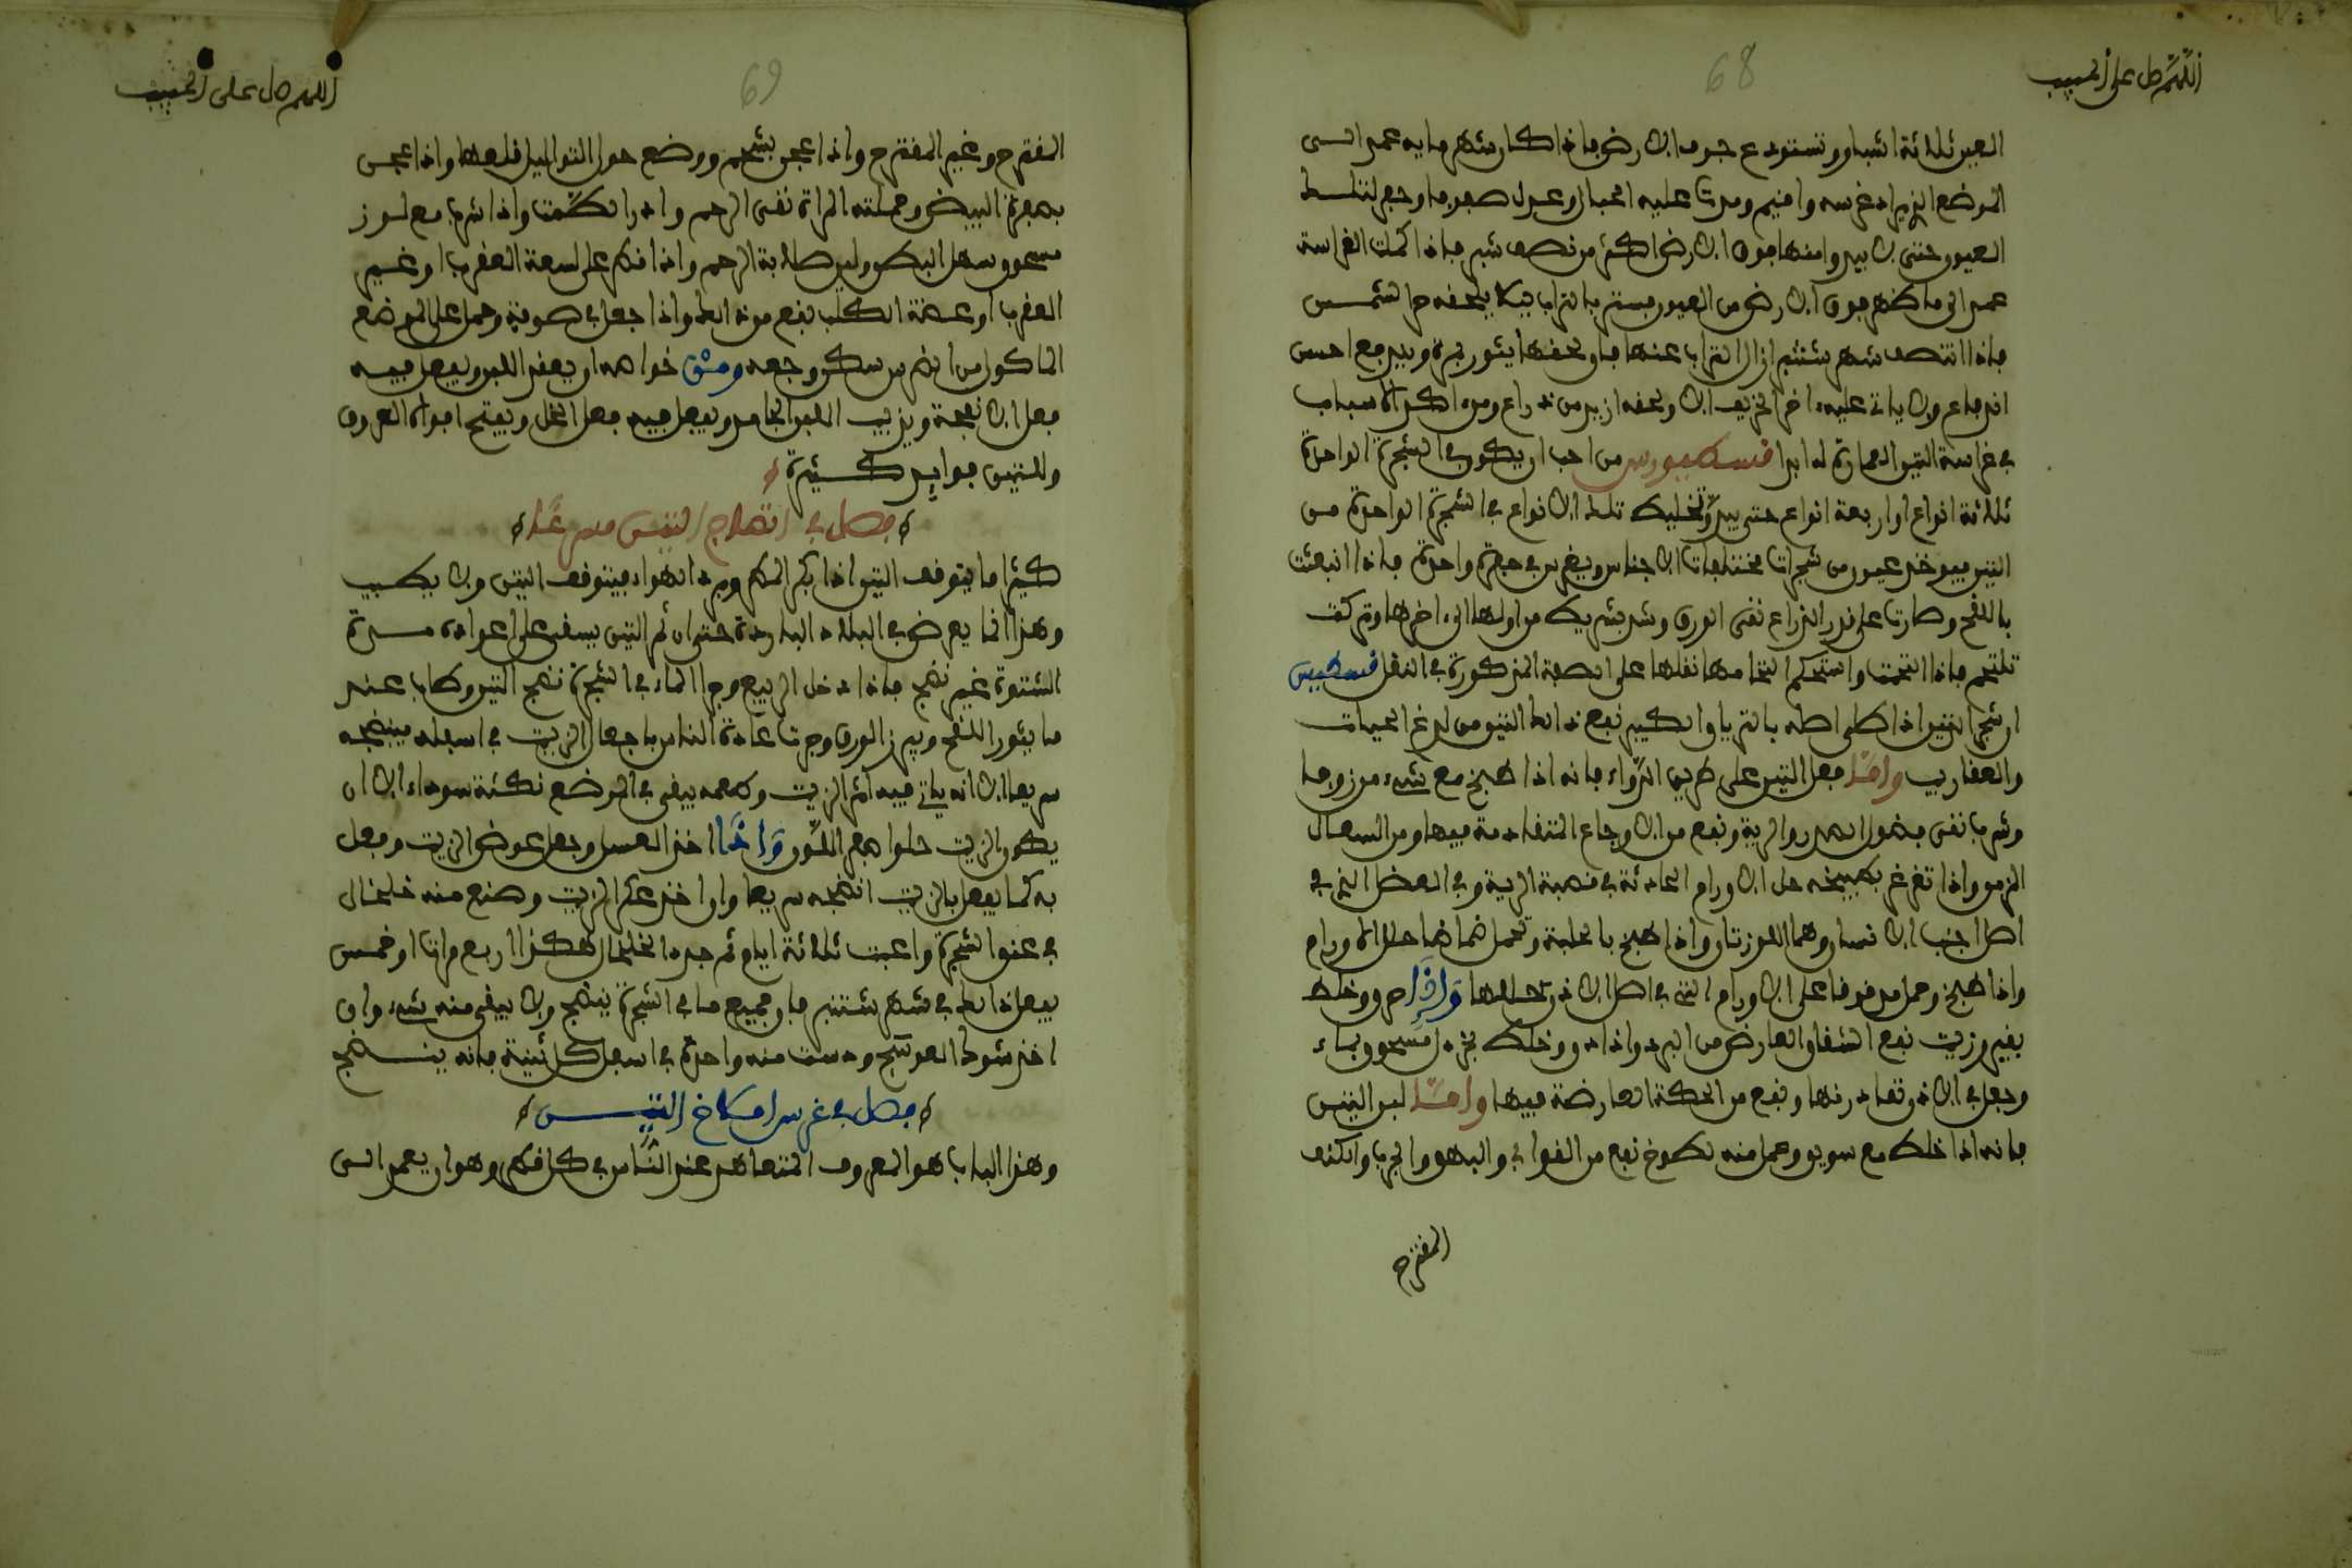 اللهم صل على الحبيب
68
العين ثلاثة اشبار وتستودع جوف الارض فاذا كان شهر مايه عمد الى
الموضع الذى يراد غرسه واقيم ومدت عليه الحبال وعدل صفوفا وجعل لتلك
العيون حتى لا يبدوا منها فوق الارض اكثر من نصف شبر فاذا كملت الغراسة
عمد الى ما ظهر فوق الارض من العيون فستر بالتراب ليلا يلحفه حر الشمس
فاذا انتصف شهر شتنبر ازال التراب عنها فان لحفها يثور ويرجع احسن
اندفاع ولا ياتى عليه اخر الخريف الا ولحفه ازيد من ذراع ومن انكر الاسباب
فى غراسة التين العمارة له ابدا قسطيوس من احب ان يكون فى الشجرة الواحدة
ثلاثة انواع او اربعة انواع حتى يريد تخليط تلك الانواع فى الشجرة الواحدة من
التين فيوخذ عيون من شجرات مختلفات الاجناس ويغرس فى حفرة واحدة فاذا انبعثت
باللقح وصارت على قدر الذراع نقى الورق وشد بشريك من اولها الى اخرها وتركت
تلتحم فاذا التحمت واستحكم التحامها نقلها على الصفة المذكورة فى النقل قسطيس
ان شجر التين اذا طلى اصله بالترياق الكبير نفع ذلك التين من لدغ الحيات
والعقارب واما فعل التين على طريق الدواء فانه اذا طبخ مع شىء من زوفا
وشرب نقى فضول الصدر والرية ونفع من الاوجاع المتقادمة فيها ومن السعال
المزمن واذا تغرغر بطبيخه حلل الاورام الحادثة فى قصبة الرية وفى العضل الذى فى
اصل اجناب اللسان وهما اللوزتان واذا طبخ بالحلبة وتحمل ضمادها حلل الاورام
واذا طبخ وحمل مدقوقا على الاورام التى فى اصل الاذن حللها واذا حرق وخلط
بقيروزيت نفع الشقاق العارض من البرد واذا دق وخلط بخردل مسحوق بماء
وجعل فى الاذن نفع من الحكة العارضة فيها واما لبن التين
فانه اذا خلط مع سويق وعمل منه لطوخ نفع من القوابى والبهق والجرب والكلف
المقترح
اللهم صل على الحبيب
69
المقترح وغير المقترح واذا عجن بشحم ووضع حول الثواليل قلعها واذا عجن
بصفرة البيض وحملته المراة نقى الرحم وادر الطمث واذا شرب مع لوز
مسحوق سهل البطن ولين صلابة الرحم واذا قطر على لسعة العقرب او غير
العقرب او عضة الكلب نفع من ذلك واذا جعل فى صوفة وحمل على الموضع
الماكول من الضرس سكن وجعه ومن خواصه ان يعقد اللبن ويفعل فيه
فعل الانفحة ويذيب اللبن الجامد ويفعل فيه فعل الخل ويفتح افواه العروق
وللتين فوايد كثيرة
فصل فى انضاج التين مسرعا
كثيرا ما يتوقف التين اذا بكر المطر وبرد الهواء فيتوقف التين ولا يطيب
وهذا انما يعرض فى البلاد الباردة حتى ان ثم التين يبقى على اعواده مدة
الشتوة غير نضج فاذا دخل الربيع وجرا الماء فى الشجرة نضج التين وطاب عند
ما يثور اللقح ويبرز الورق وجرت عادة الناس بان جعل الزيت فى اسفله فينضجه
سريعا الا انه ياتى فيه اثر الزيت وطعمه ويبقى فى الموضع نكتة سوداء الا ان
يكون الزيت حلوا فجر اللون واذا اخذ العسل وجعل عوض الزيت وفعل
به كما يفعل بالزيت انضجه سريعا وان اخذ عكر الزيت وصنع منه خلخال
فى عنق الشجرة واعبت ثلاثة ايام ثم جدد الخلخال هكذا اربع مرات او خمس
يفعل ذلك فى شهر شتنبر فان جميع ما فى الشجرة ينضج ولا يبقى منه شىء وان
اخذ شوك العوسج ودست منه واحدة فى اسفل كل تينة فانه ينضج
فصل فى غرس امطاخ التين
وهذا الباب هو المعروف المتعاهد عند الناس فى كل قطر وهو ان يعمد الى